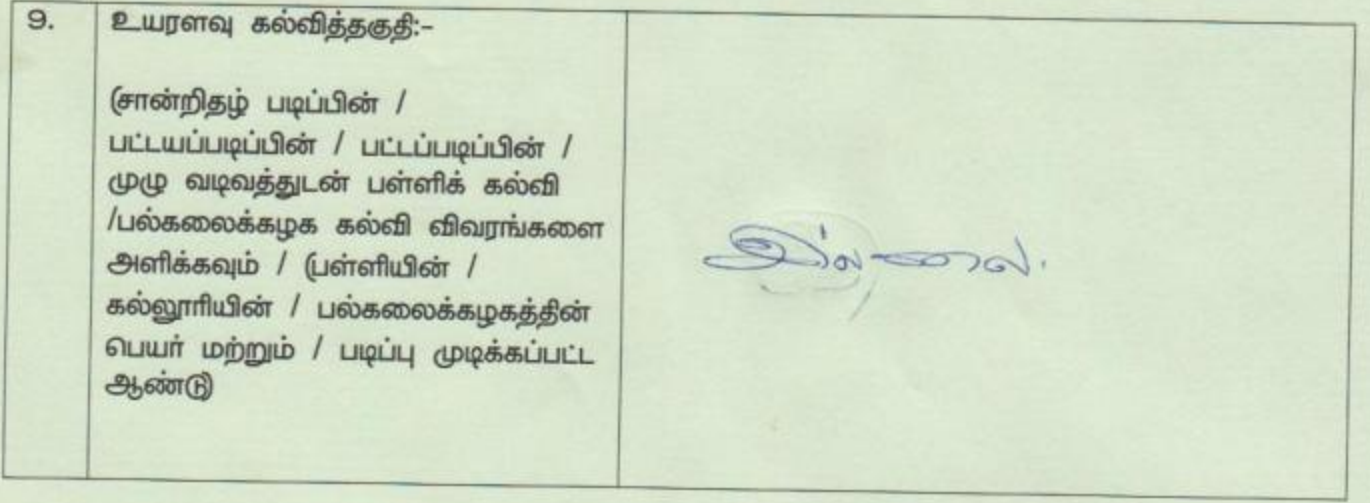 9. உயரளவு கல்வித்தகுதி:-
(சான்றிதழ் படிப்பின் /
பட்டயப்படிப்பின் / பட்டப்படிப்பின் /
முழு வடிவத்துடன் பள்ளிக் கல்வி
/பல்கலைக்கழக கல்வி விவரங்களை
அளிக்கவும் / (பள்ளியின் /
கல்லூரியின் / பல்கலைக்கழகத்தின்
பெயர் மற்றும் / படிப்பு முடிக்கப்பட்ட
ஆண்டு)
இல்லை.